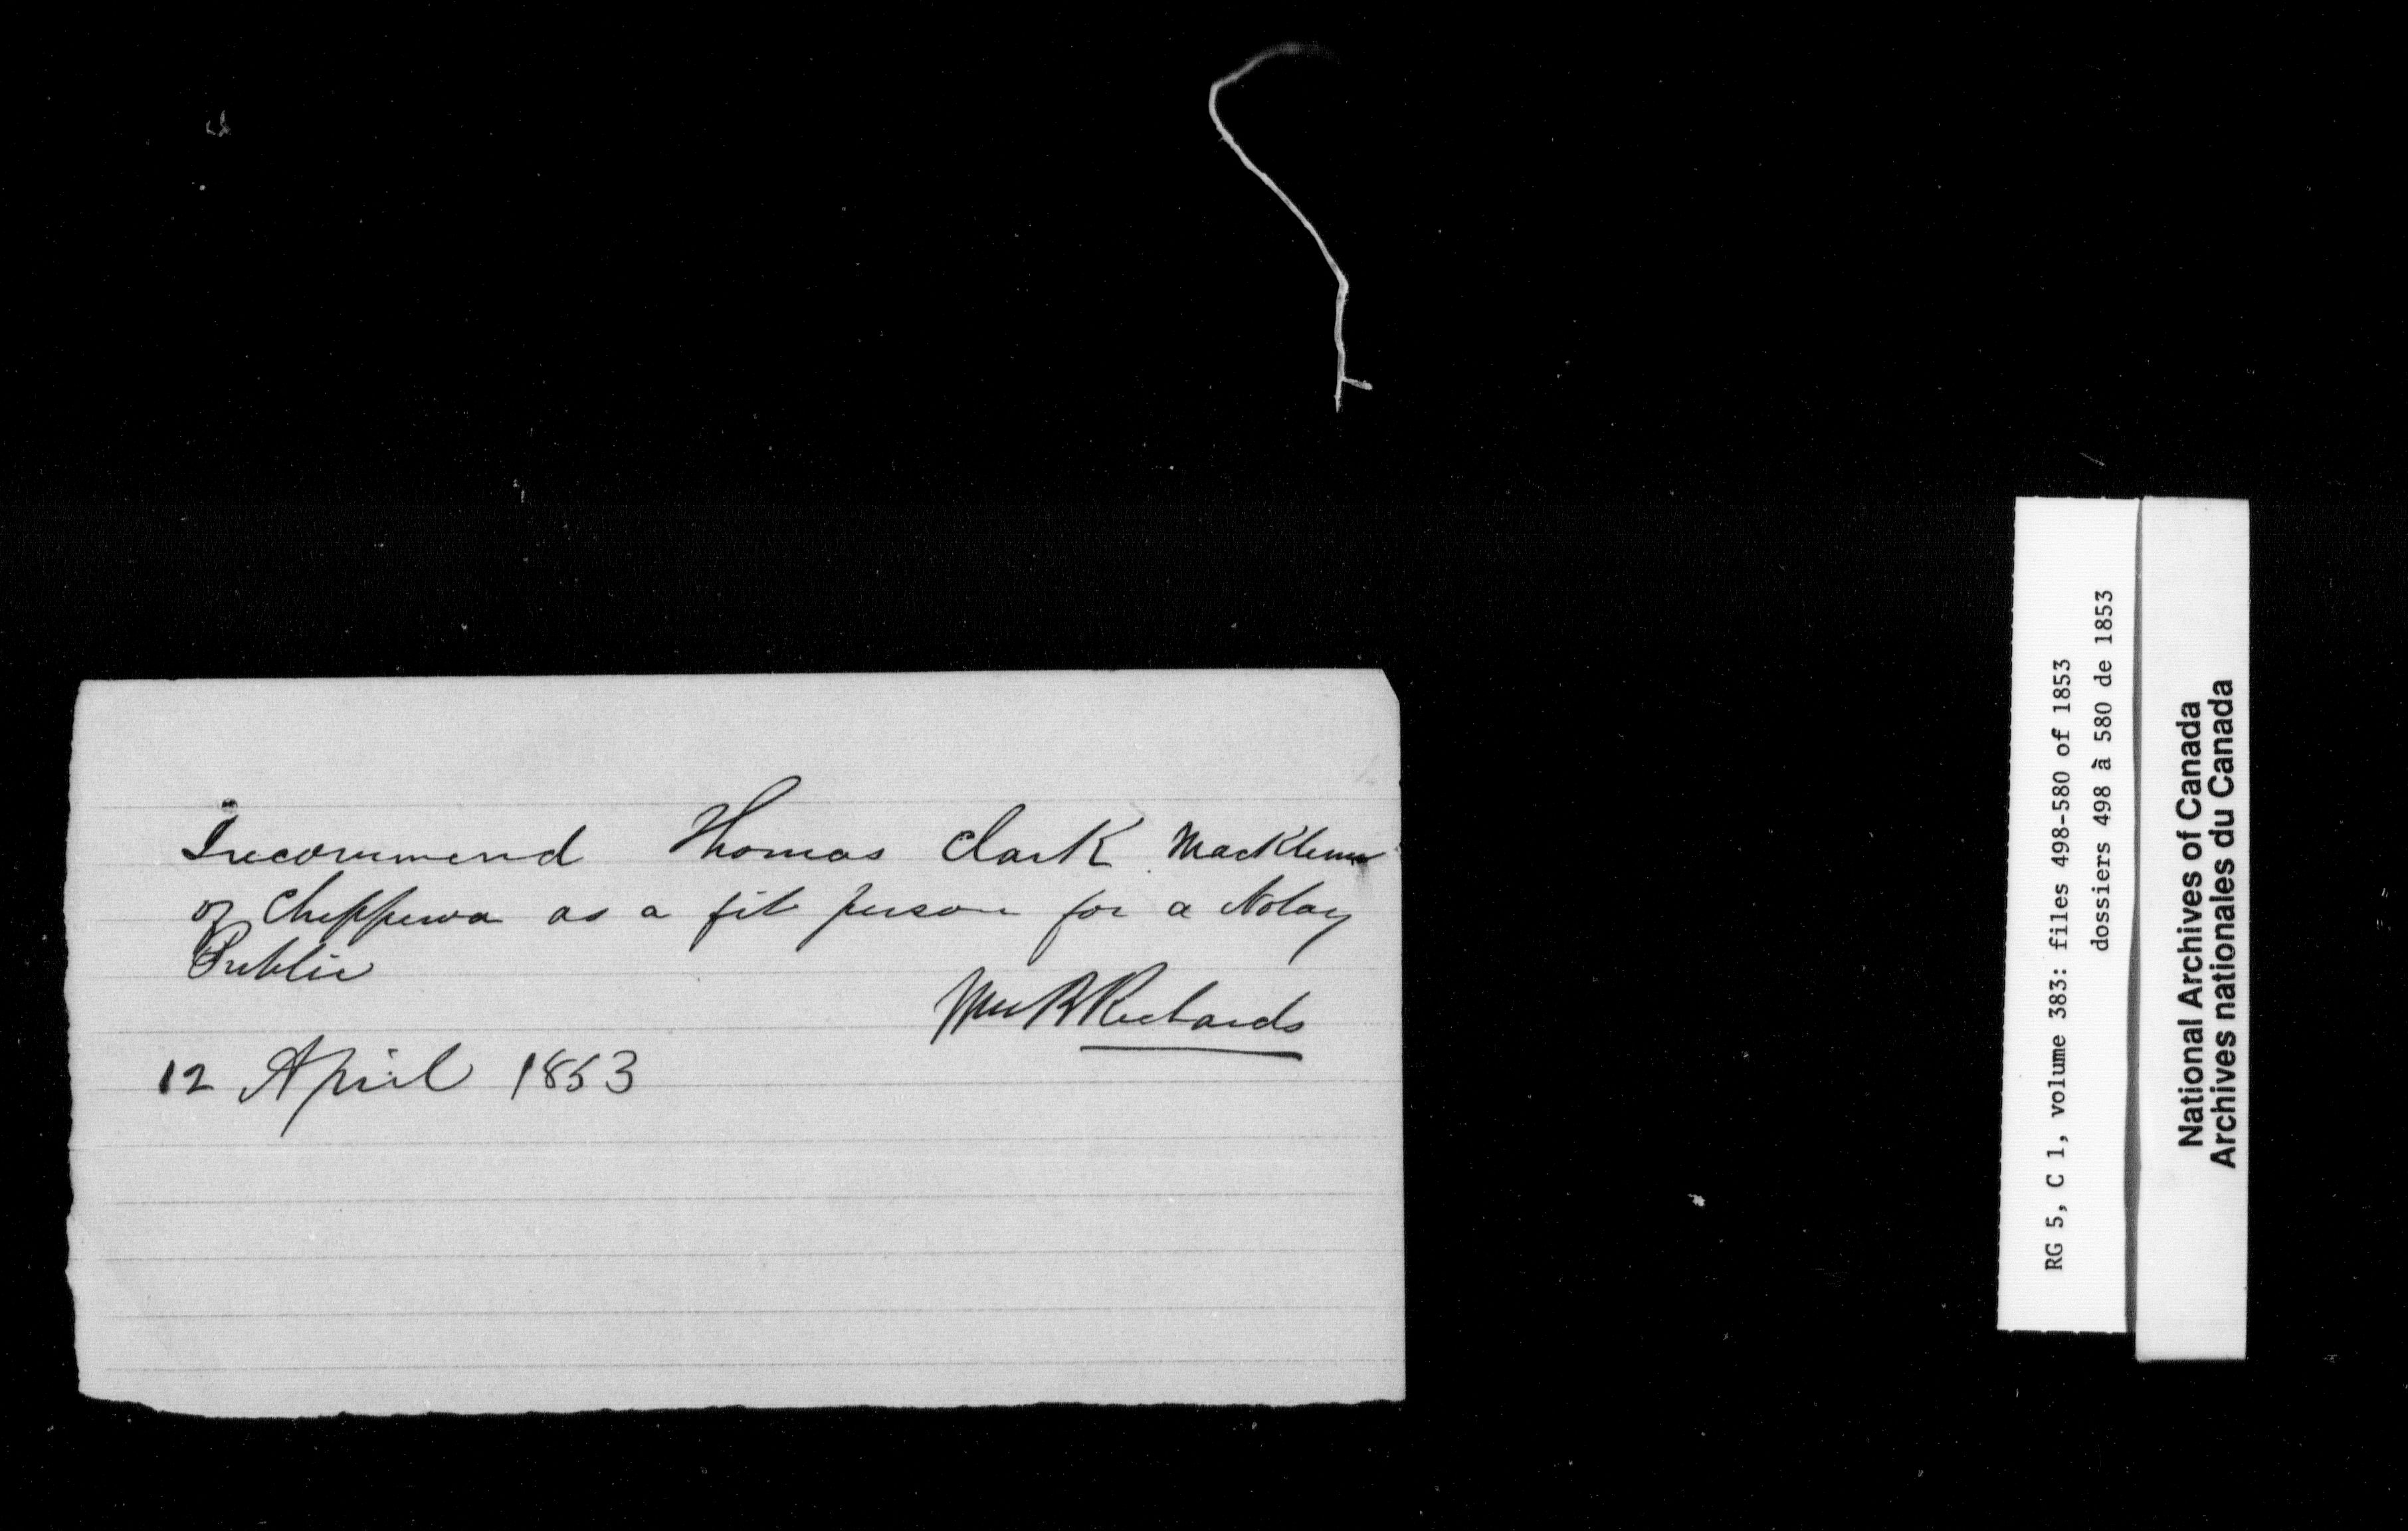 I recommend Thomas Clark Macklem
of Chippewa as a fit person for a Notary
Public
Wm B Richards
12 April 1853
RG 5, C 1, volume 383: files 498-580 of 1853
dossiers 498 à 580 de 1853
National Archives of Canada
Archives nationales du Canada